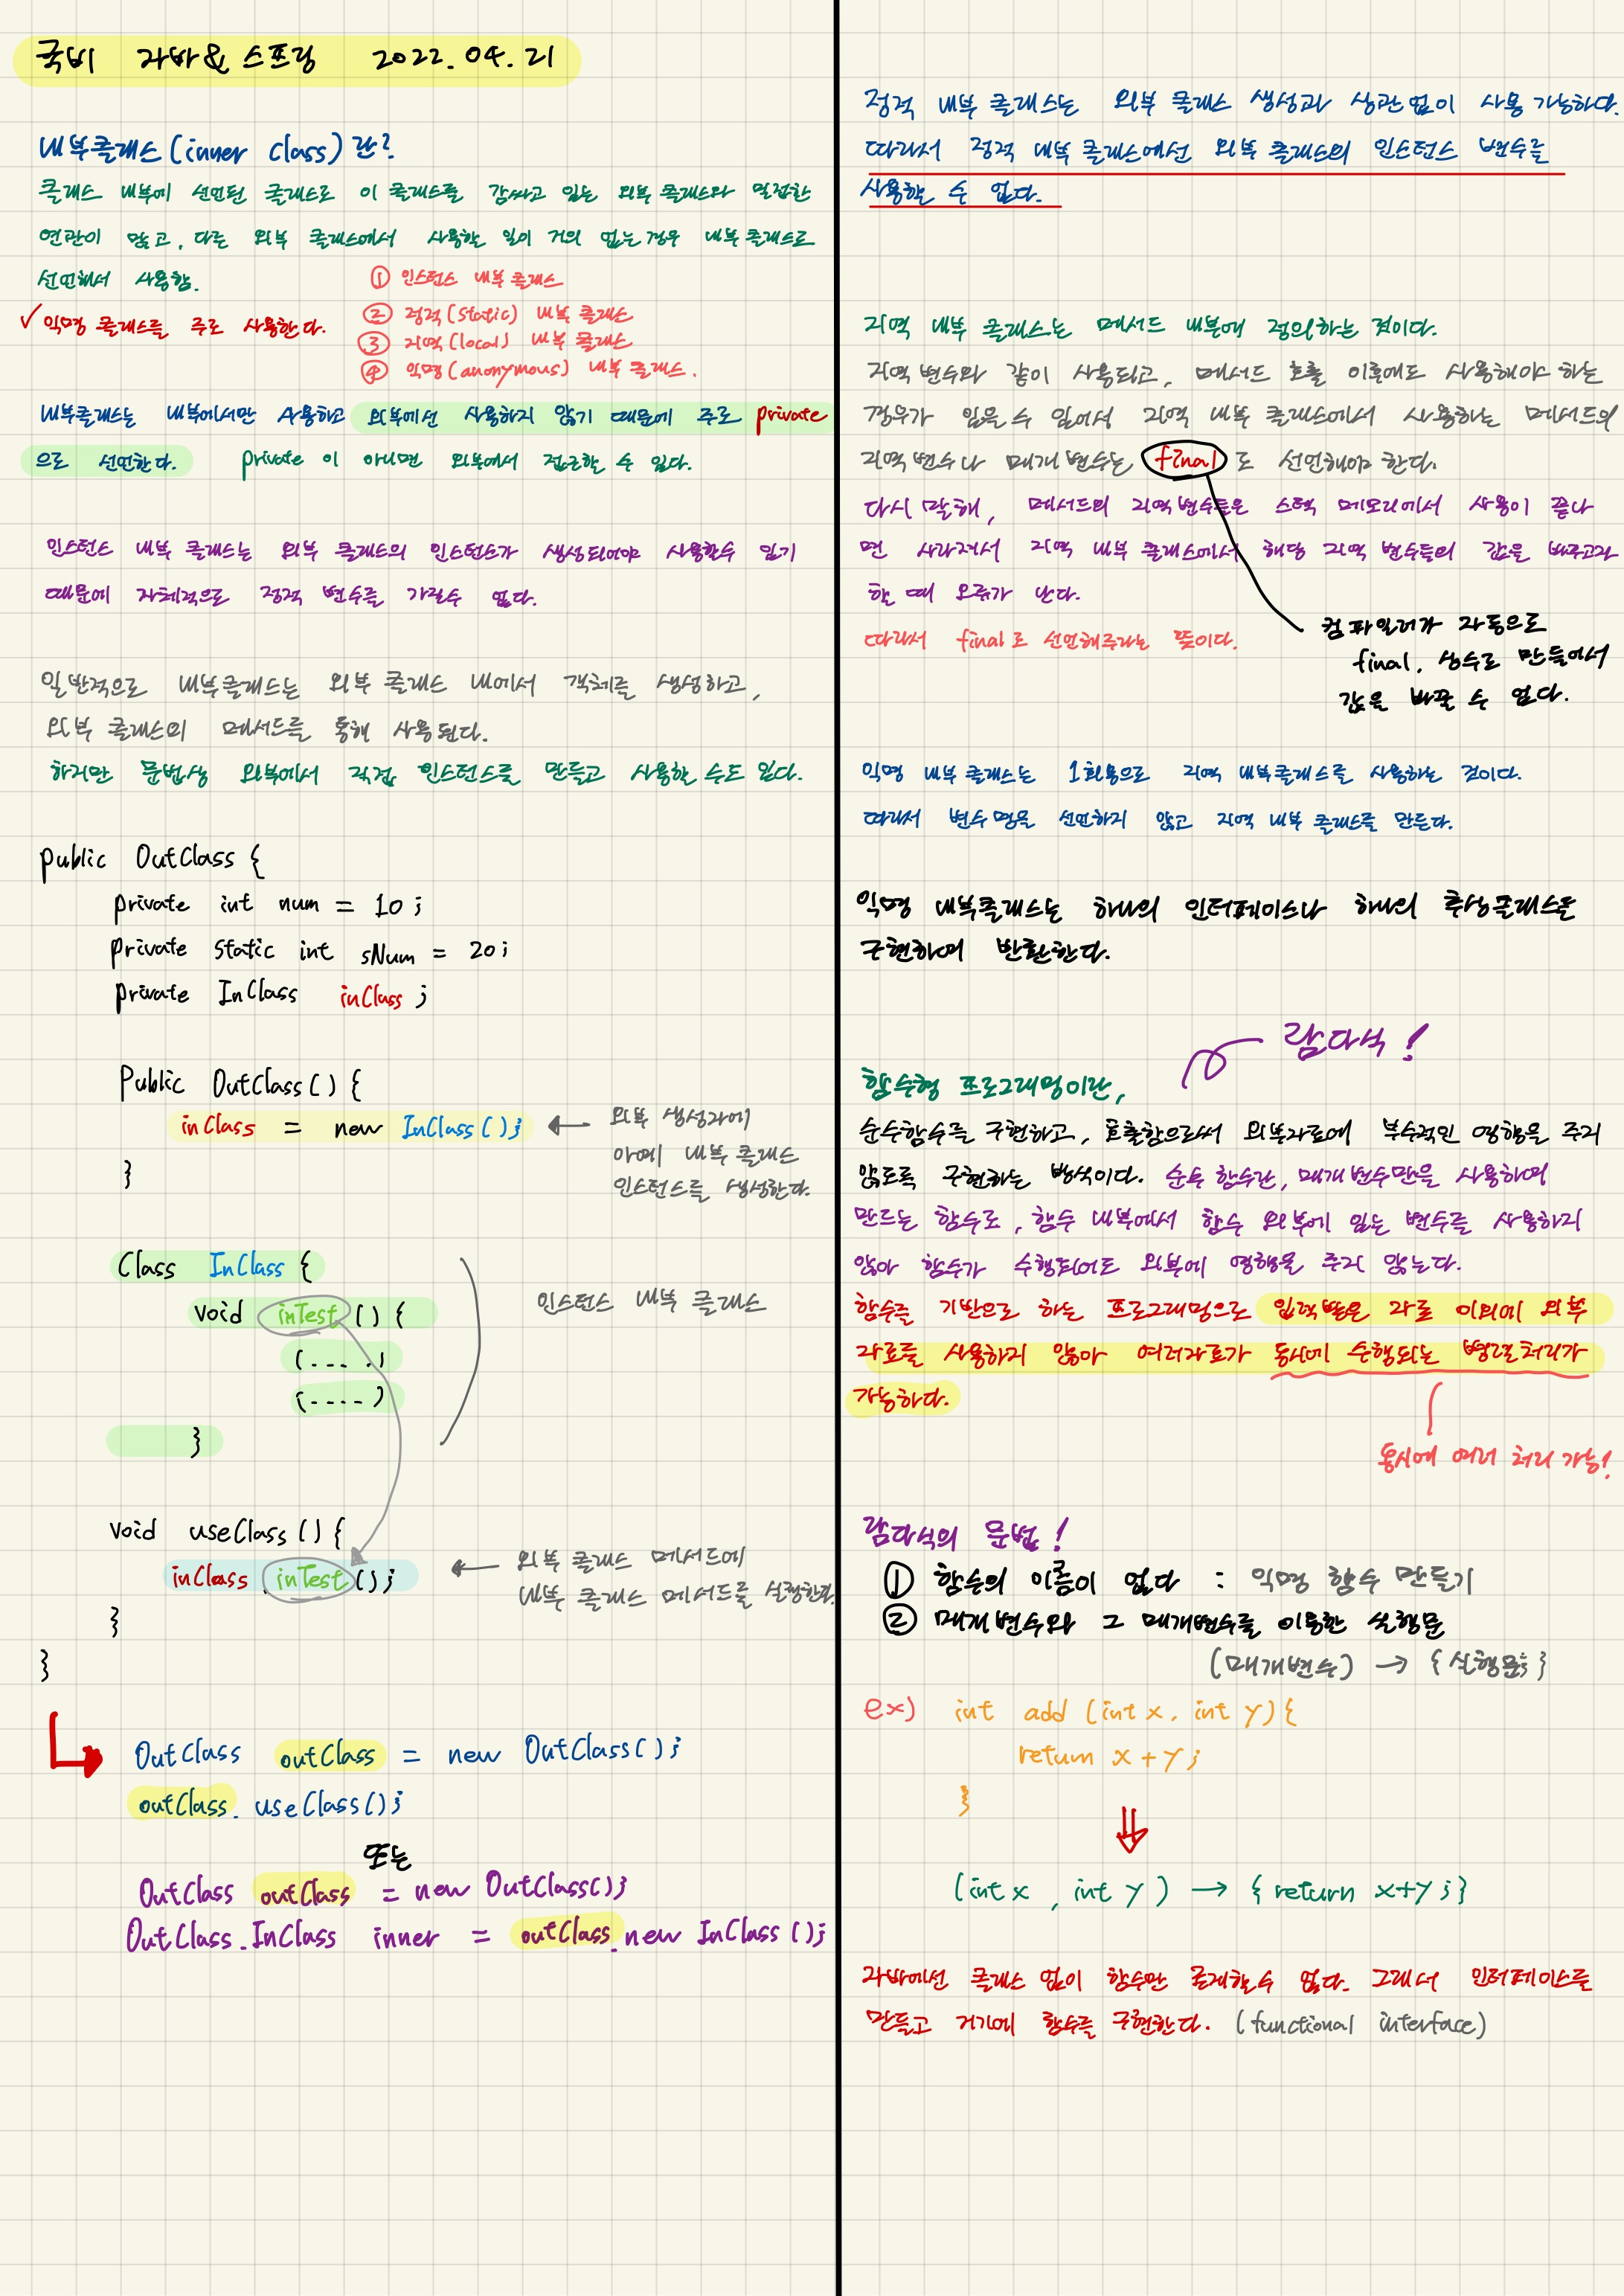 국비 자바&스프링 2022.04.21
내부클래스(inner class)란?
클래스 내부에 선언된 클래스로 이 클래스를 감싸고 있는 외부 클래스와 밀접한
연관이 많고, 다른 외부 클래스에서 사용할 일이 거의 없는 경우 내부 클래스로
선언해서 사용함.
✓ 익명 클래스를 주로 사용한다.
① 인스턴스 내부 클래스
② 정적(static) 내부 클래스
③ 지역(local) 내부 클래스
④ 익명(anonymous) 내부 클래스.
내부클래스는 내부에서만 사용하고 외부에선 사용하지 않기 때문에 주로 private
으로 선언한다. private이 아니면 외부에서 접근할 수 있다.
인스턴스 내부 클래스는 외부 클래스의 인스턴스가 생성되어야 사용할수 있기
때문에 자체적으로 정적 변수를 가질수 없다.
일반적으로 내부클래스는 외부 클래스 내에서 객체를 생성하고,
외부 클래스의 메서드를 통해 사용된다.
하지만 문법상 외부에서 직접 인스턴스를 만들고 사용할 수도 있다.
public OutClass {
private int num = 10;
private static int sNum = 20;
private InClass inClass;
Public OutClass() {
inClass = new InClass(); ← 외부 생성자에
아예 내부 클래스
인스턴스를 생성한다.
}
Class InClass {
void inTest () {
인스턴스 내부 클래스
(....)
(....)
}
void useClass () {
inClass.inTest(); ← 외부 클래스 메서드에
내부 클래스 메서드를 실행한다.
}
}
OutClass outClass = new OutClass();
outClass.useClass();
또는
OutClass outClass = new OutClass();
OutClass.InClass inner = outClass.new InClass();
정적 내부 클래스는 외부 클래스 생성과 상관 없이 사용 가능하다.
따라서 정적 내부 클래스에선 외부 클래스의 인스턴스 변수를
사용할 수 없다.
지역 내부 클래스는 메서드 내부에 정의하는 것이다.
지역 변수와 같이 사용되고, 메서드 호출 이후에도 사용해야 하는
경우가 있을 수 있어서 지역 내부 클래스에서 사용하는 메서드의
지역변수나 매개 변수는 final로 선언해야 한다.
다시 말해, 메서드의 지역변수들은 스택 메모리에서 사용이 끝나
면 사라져서 지역 내부 클래스에서 해당 지역 변수들의 값을 바꾸고자
할 때 오류가 난다.
따라서 final로 선언해주라는 뜻이다.
컴파일러가 자동으로
final, 상수로 만들어서
값을 바꿀 수 없다.
익명 내부 클래스는 1회용으로 지역 내부클래스를 사용하는 것이다.
따라서 변수 명을 선언하지 않고 지역 내부 클래스를 만든다.
익명 내부클래스는 하나의 인터페이스나 하나의 추상클래스을
구현하여 반환한다.
람다식!
함수형 프로그래밍이란,
순수함수를 구현하고, 호출함으로써 외부자료에 부수적인 영향을 주지
않도록 구현하는 방식이다. 순수 함수란, 매개 변수만을 사용하여
만드는 함수로, 함수 내부에서 함수 외부에 있는 변수를 사용하지
않아 함수가 수행되어도 외부에 영향을 주지 않는다.
함수를 기반으로 하는 프로그래밍으로 입력받은 자료 이외에 외부
자료를 사용하지 않아 여러자료가 동시에 수행되는 병렬처리가
가능하다.
동시에 여러 처리 가능!
람다식의 문법!
① 함수의 이름이 없다 : 익명 함수 만들기
② 매개변수와 그 매개변수를 이용한 실행문
(매개변수) → {실행문;}
ex) int add (int x, int y) {
return x+y;
}
⇓
(int x, int y) → { return x+y; }
자바에선 클래스 없이 함수만 존재할수 없다. 그래서 인터페이스를
만들고 거기에 함수를 구현한다. (functional interface)